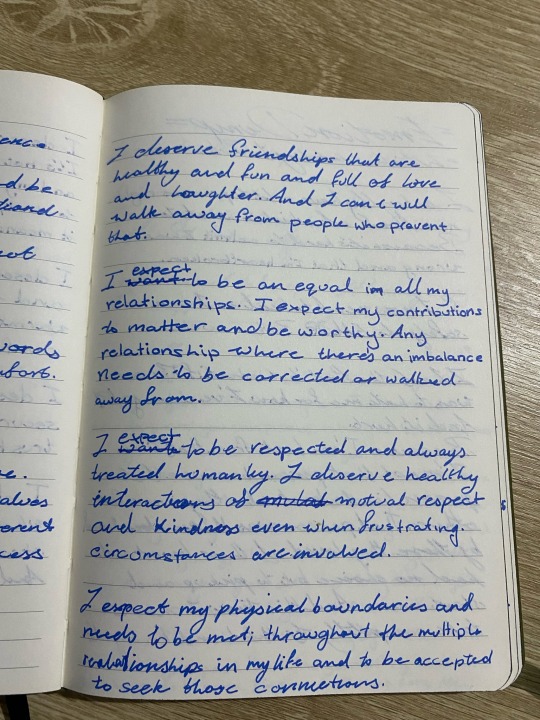 ence.
d be
tioned
ect
words
fort.
e.
alues
erent
cess
I deserve friendships that are
healthy and fun and full of love
and laughter. And I can & will
walk away from people who prevent
that.
I expect
want to be an equal in all my
relationships. I expect my contributions
to matter and be worthy. Any
relationship where there's an imbalance
needs to be corrected or walked
away from.
I expect
want to be respected and always
treated humanely. I deserve healthy
interactions of mutal mutual respect
and Kindness even when frustrating
circumstances are involved.
I expect my physical boundaries and
needs to be met; throughout the multiple
realationships in my life and to be accepted
to seek those connections.